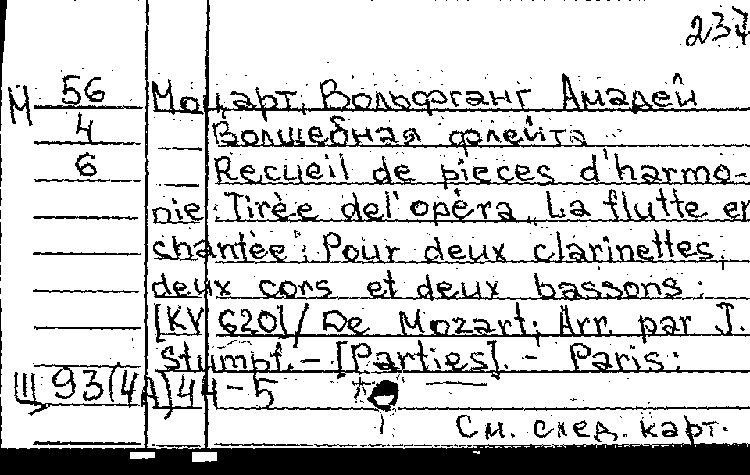 237
М 56 Моцарт, Вольфганг Амадей
4 Волшебная флейта
6 Recueil de pieces d'harmo-
nie: Tirèe del'opèra „La flutte en
chantèe": Pour deux clarinettes,
deux cors et deux bassons:
[KV 620] / De Mozart; Arr. par J.
Stumpf. – [Parties]. – Paris:
Ш 93(4А)44-5
См. след. карт.